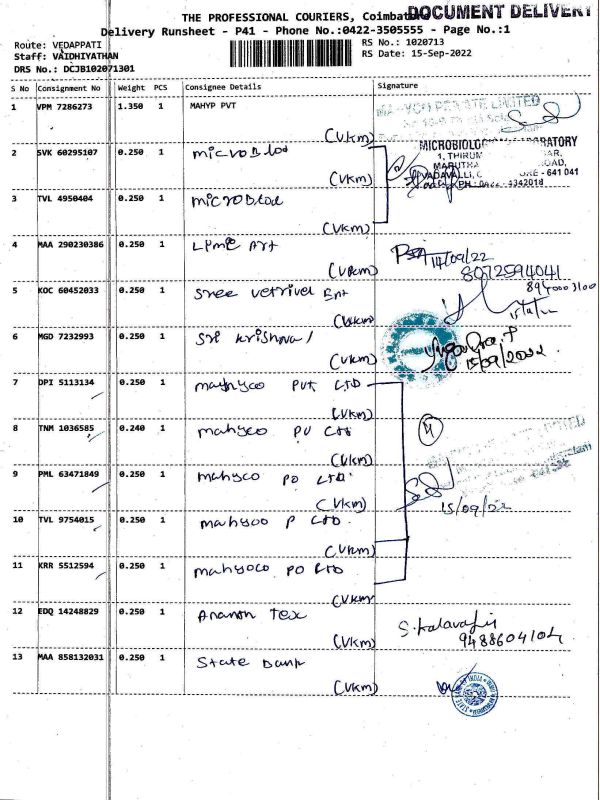 DOCUMENT DELIVERY
THE PROFESSIONAL COURIERS, Coimbat
Delivery Runsheet - P41 - Phone No.:0422-3505555 - Page No.:1
Route: VEDAPPATI
RS No.: 1020713
Staff: VAIDHIYATHAN
RS Date: 15-Sep-2022
DRS No.: DCJB102071301
S No Consignment No Weight PCS Consignee Details Signature
1 VPM 7286273 1.350 1 MAHYP PVT
(VKM)
MICROBIOLOGY LABORATORY
2 SVK 60295107 0.250 1 microBlod
1, THIRUM
MARUTHA ROAD,
VADAVALLI, C ORE - 641 041
(VKM)
PH: 0422 - 4342018
3 TVL 4950404 0.250 1 microBlod
(VKM)
4 MAA 290230386 0.250 1 Lime Art
14/09/22
(VKM) 8072594041
5 KOC 60452033 0.250 1 Sree vetrivel Ent
(VKM)
6 MGD 7232993 0.250 1 Sri Krishna
15/09/2022
(VKM)
7 DPI 5113134 0.250 1 mahyco PVT LTD
(VKM)
8 TNM 1036585 0.240 1 mahyco PV LTD
(VKM)
9 PML 63471849 0.250 1 mahyco PO LTD
(VKM) 15/09/22
10 TVL 9754015 0.250 1 mahyco P LTD
(VKM)
11 KRR 5512594 0.250 1 mahyoco PO LTD
(VKM)
12 EDQ 14248829 0.250 1 Ananth Tex
9488604104
(VKM)
13 MAA 858132031 0.250 1 State Bank
(VKM)